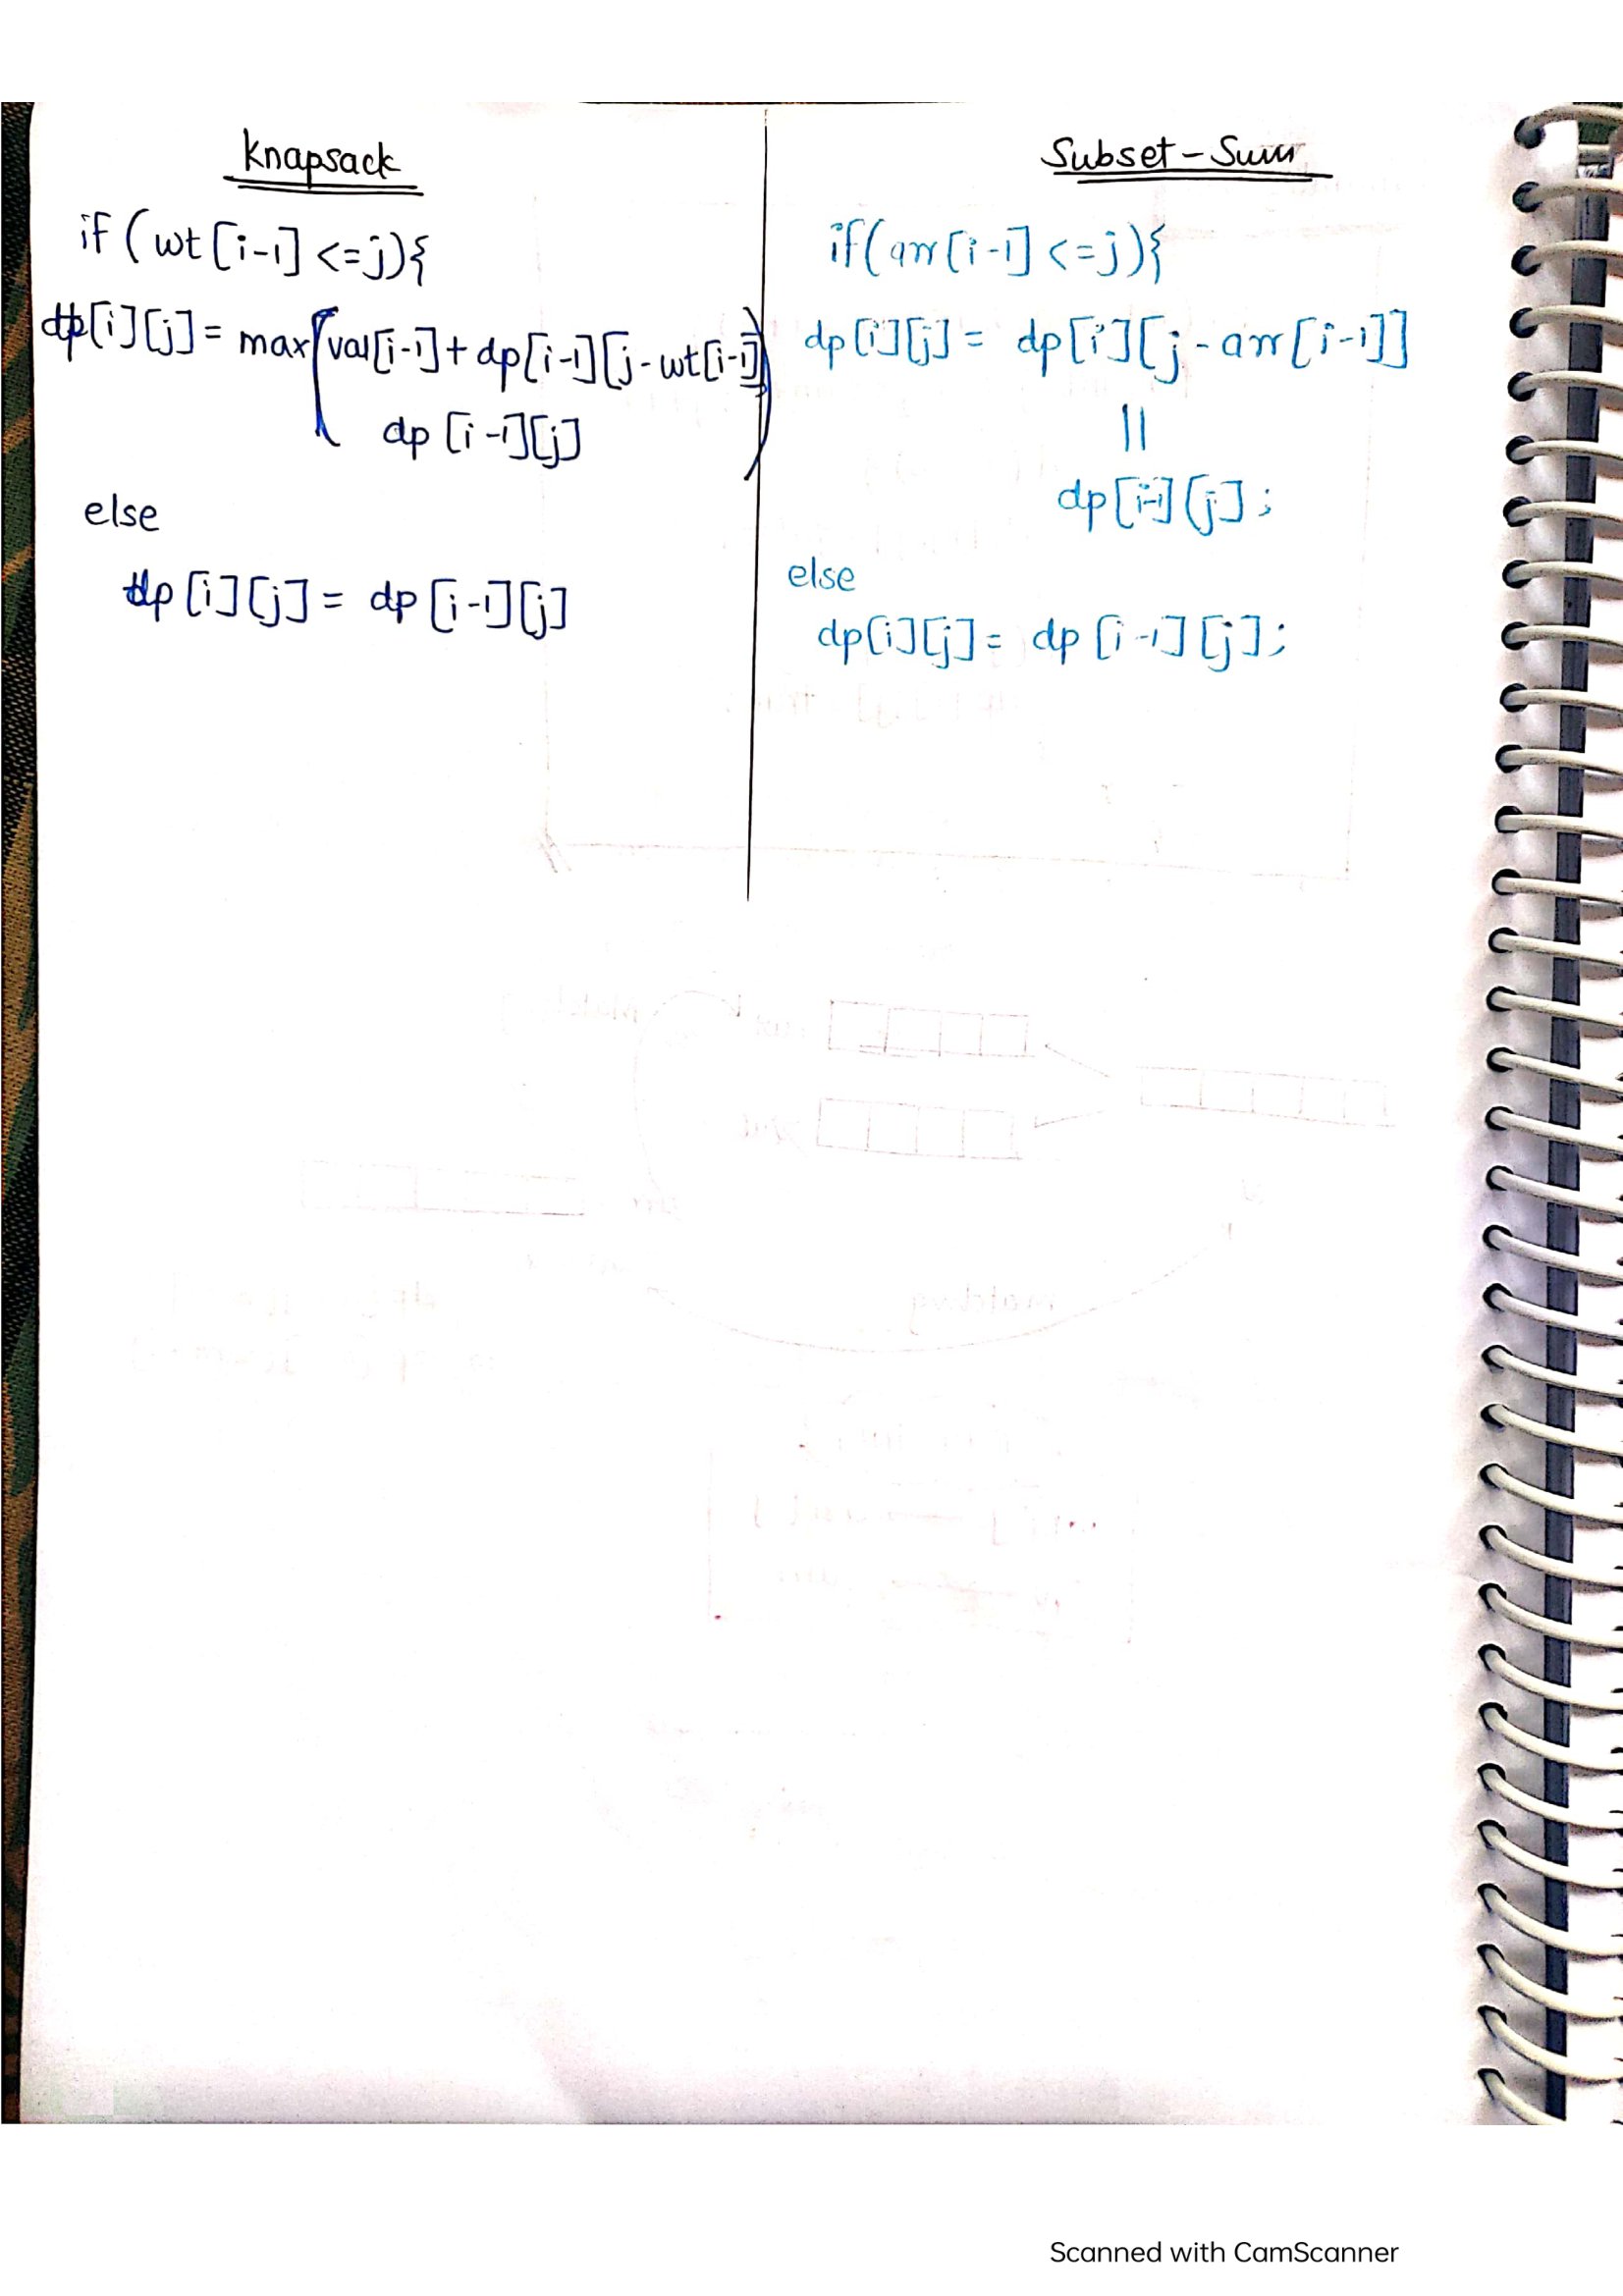 Knapsack
if (wt[i-1] <=j){
dp[i][j] = max(val[i-1] + dp[i-1][j-wt[i-1]]
dp[i-1][j])
else
dp[i][j] = dp[i-1][j]
Subset-Sum
if(arr[i-1] <=j){
dp[i][j] = dp[i][j-arr[i-1]]
||
dp[i-1][j];
else
dp[i][j] = dp[i-1][j];
Scanned with CamScanner